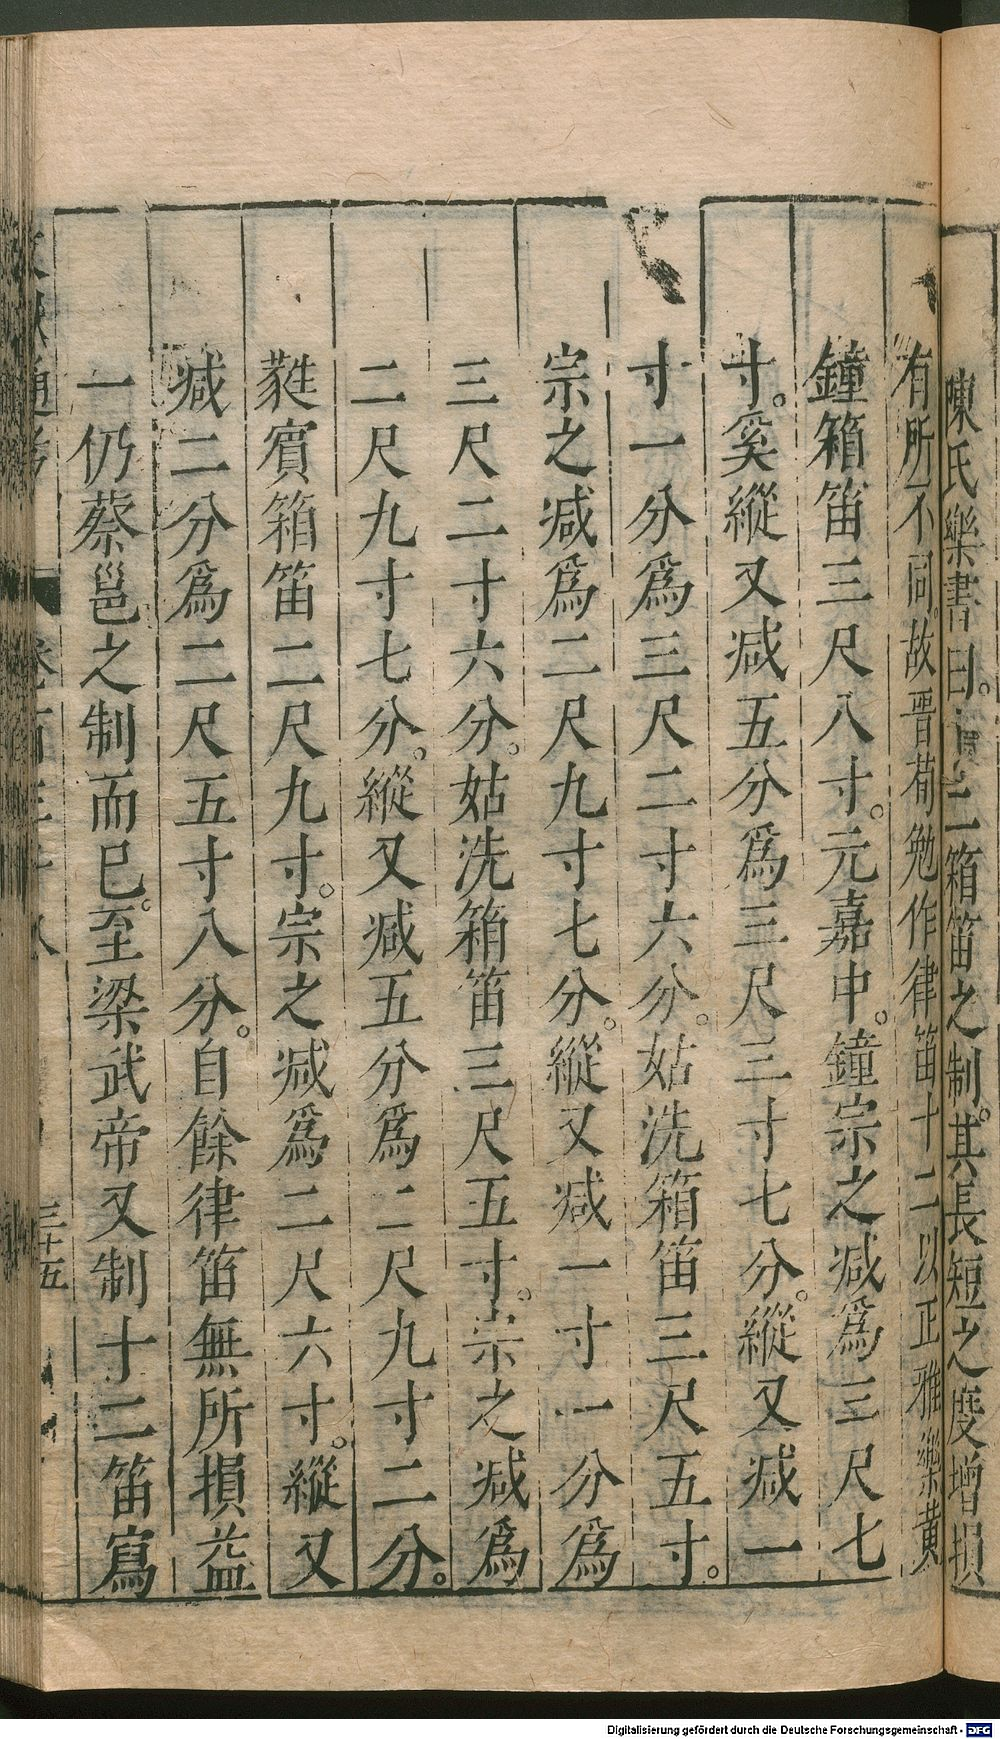 陳氏樂書曰。 箱笛之制。其長短之度增損
有所不同。故晋荀勉作律笛十二以正雅樂黄
鐘箱笛三尺八寸。元嘉中。鐘宗之减爲三尺七
寸。奚縱又减五分爲三尺三寸七分。縱又减一
寸一分爲三尺二寸六分。姑洗箱笛三尺五寸。
宗之减爲二尺九寸七分。縱又减一寸一分爲
三尺二寸六分。姑洗箱笛三尺五寸。宗之减爲
二尺九寸七分。縱又减五分爲二尺九寸二分。
蕤賔箱笛二尺九寸。宗之减爲二尺六寸。縱又
减二分爲二尺五寸八分。自餘律笛無所損益
一仍蔡邕之制而巳。至梁武帝又制十二笛寫
三十五
Digitalisierung gefördert durch die Deutsche Forschungsgemeinschaft - DFG